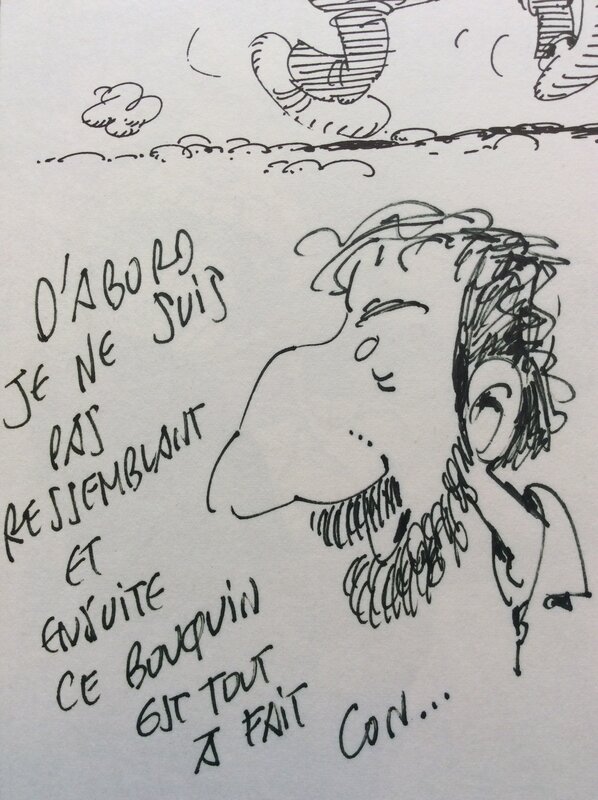 D'ABORD
JE NE SUIS
PAS
RESSEMBLANT
ET
ENSUITE
CE BOUQUIN
EST TOUT
A FAIT
CON...